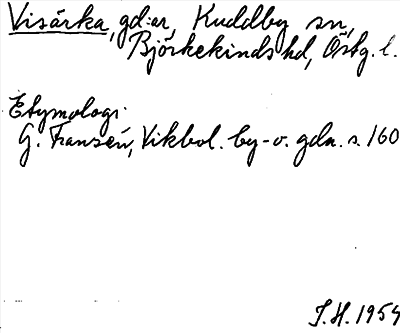 Visärka, gd:ar, Kuddby sn,
Björkekinds hd, Östg. l.
Etymologi:
G. Franzén, Vikbol. by- o. gdn. s. 160
I.H. 1954